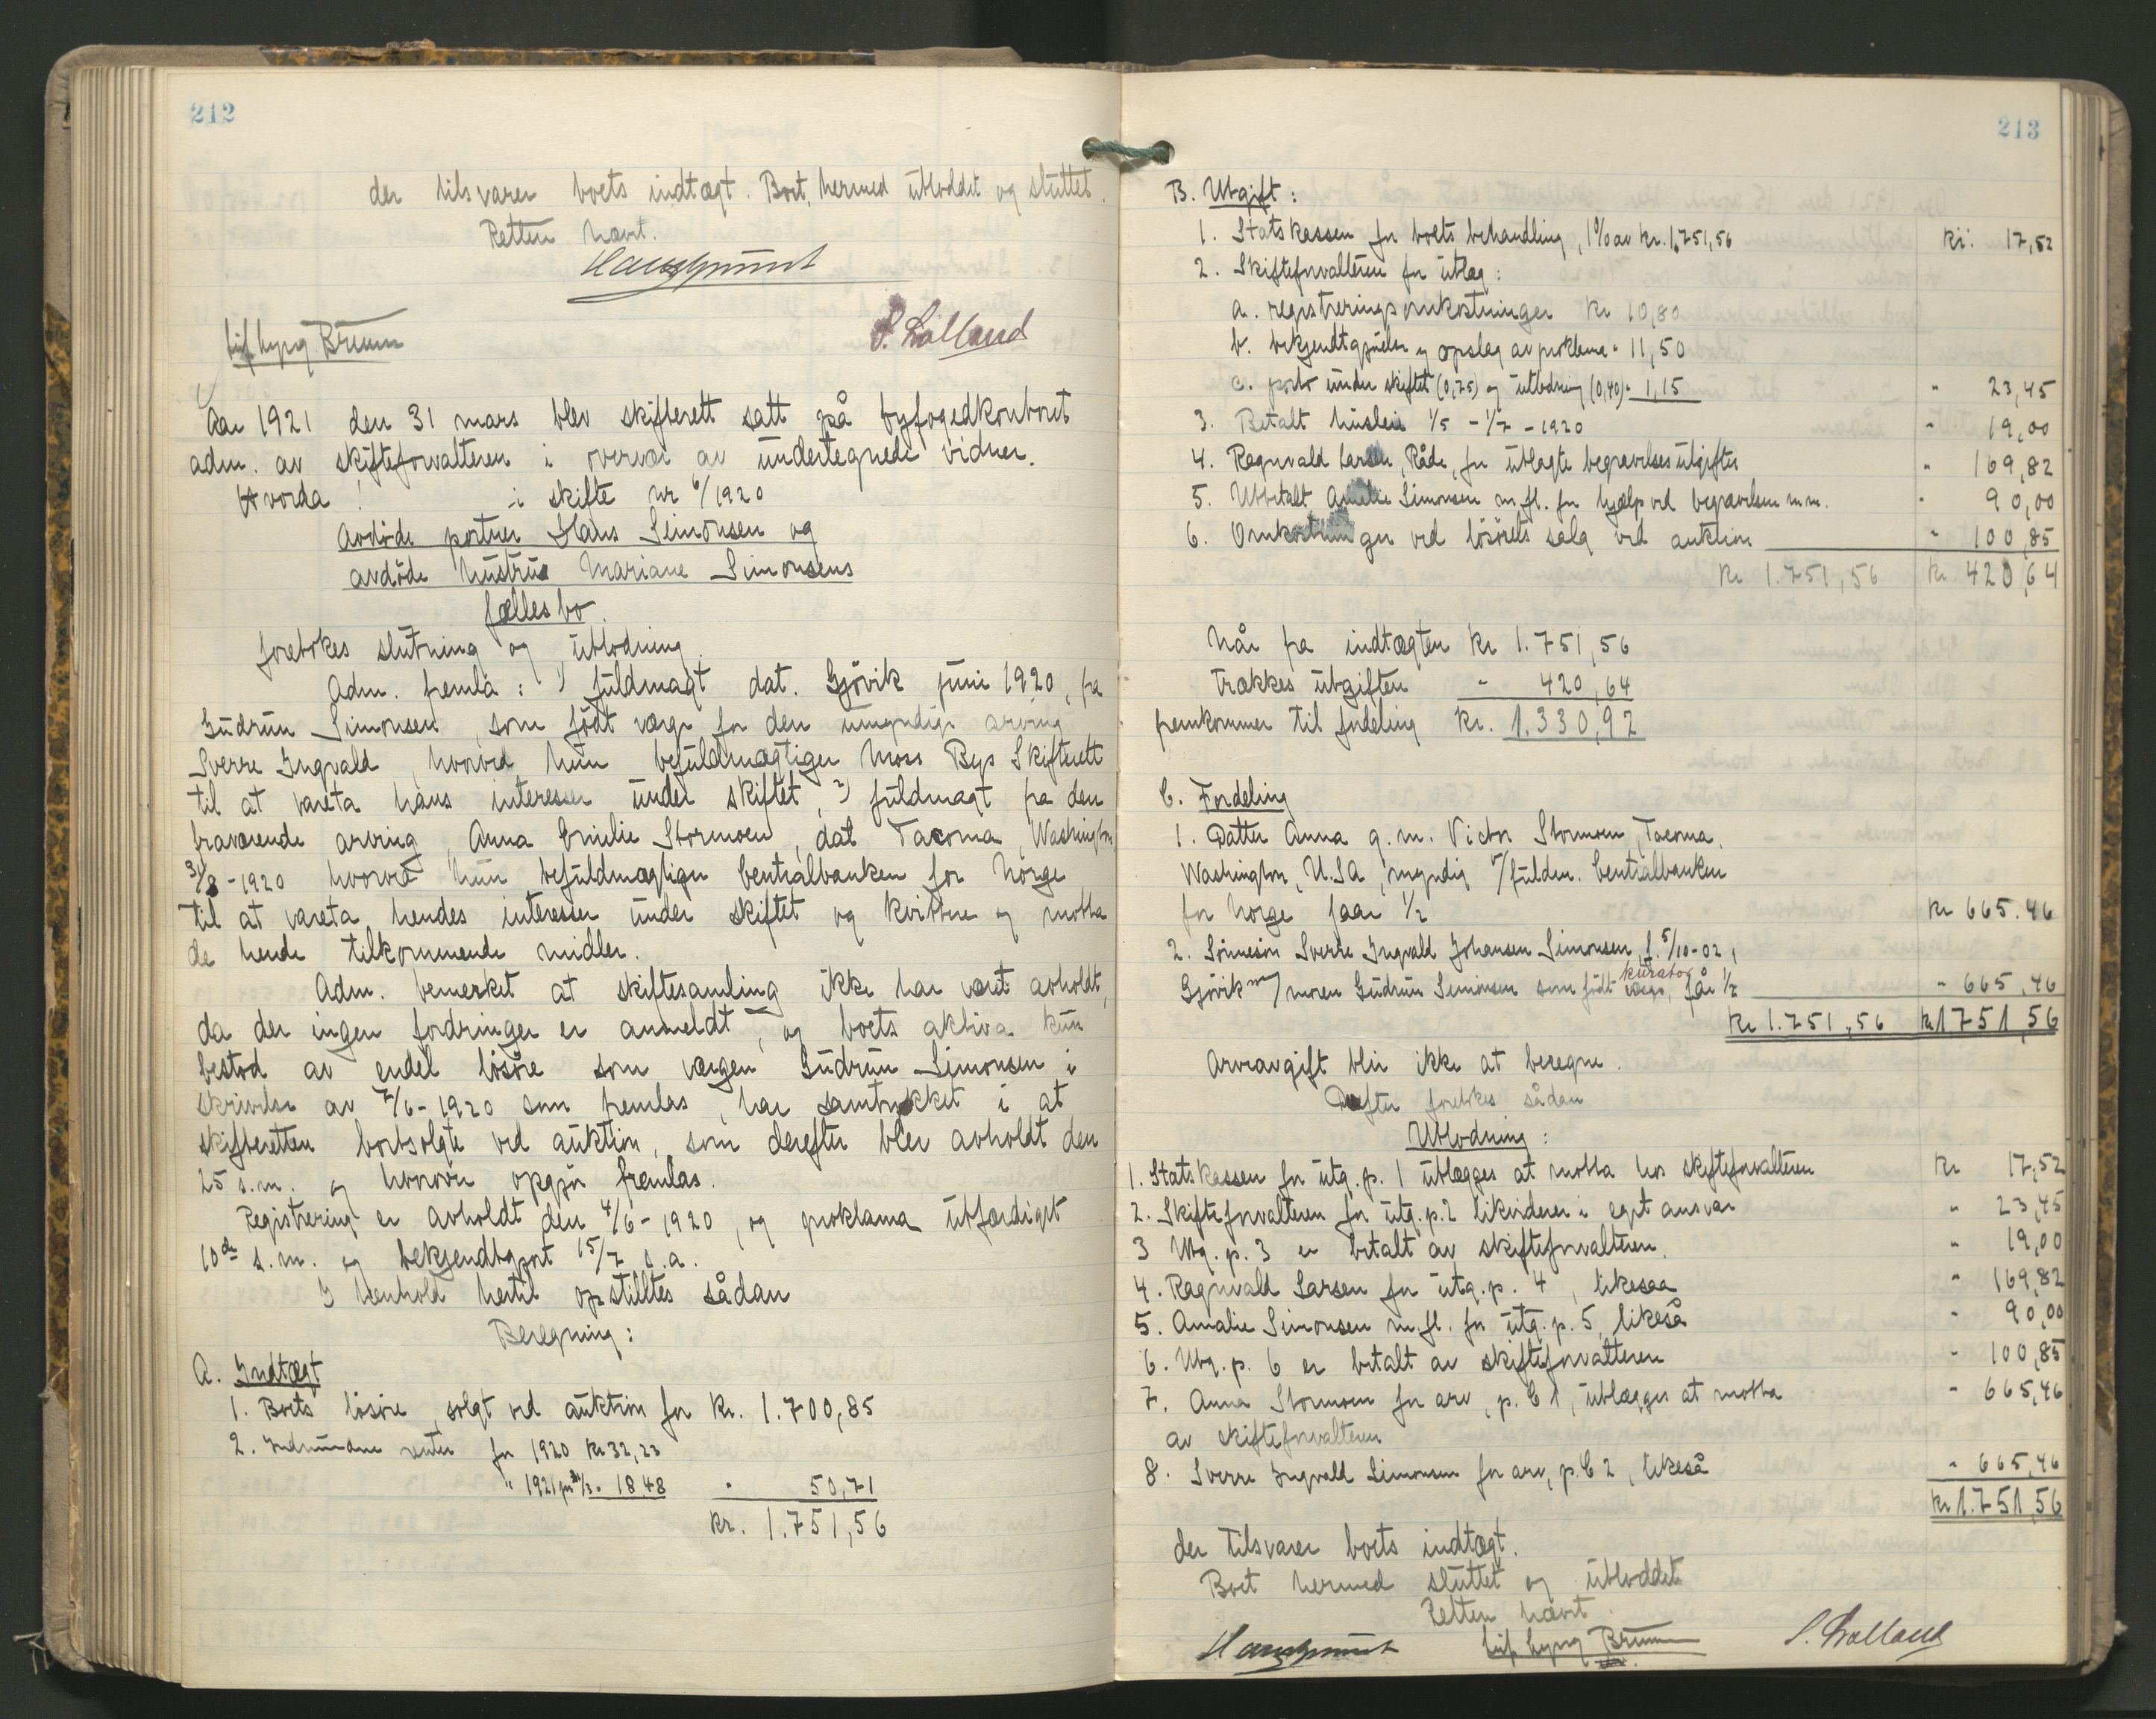 212
der tilsvarer boets indtægt. Boet hermed utloddet og sluttet.
Retten hævet.
P. Lolland
Aar 1921 den 31 mars blev skifterett satt på byfogedkontoret
adm. av skifteforvalteren i overvær av undertegnede vidner.
Hvorda: i skifte nr 6/1920
Avdöde portner Hans Simonsen og
avdöde hustrue Mariane Simonsens
fællesbo.
foretokes slutning og utlodning.
Adm. fremla: 1) fuldmagt dat. Gjövik juni 1920, fra
Gudrun Simonsen, som födt værge for den umyndige arving
Sverre Ingvald, hvorved hun befuldmægtiger Moss Bys Skifterett
til at vareta hans interesser under skiftet, 2) fuldmagt fra den
fraværende arving, Anna Emilie Stormoen, dat Tacoma, Washington
31/8 - 1920 hvorved hun befuldmægtiger Centralbanken for Norge
til at vareta hendes interesser under skiftet og kvittere og motta
de hende tilkommende midler.
Adm. bemerket at skiftesamling ikke har været avholdt,
da der ingen fordringer er anmeldt, og boets aktiva kun
bestod av endel lösöre som værgen Gudrun Simonsen i
skrivelse av 7/6 - 1920 som fremlas, har samtykket i at
skifteretten bortsolgte ved auktion, som derefter blev avholdt den
25 s.m. og hvorover opgjör fremlas.
Registrering er avholdt den 4/6 - 1920, og proklama utfærdiget
10de s.m. og bekjendtgjort 15/7 s.a.
I henhold hertil opstilltes sådan
Beregning:
A. Indtægt
1. Boets lösöre, solgt ved auktion for Kr. 1.700,85
2. Indvundne renter for 1920 Kr 32,23
" 1921 pr 31/3 - 18.48 " 50,71
Kr. 1.751,56
213
B. Utgift:
1. Statskassen for boets behandling, 1% av Kr. 1.751,56 Kr. 17,52
2. Skifteforvalteren for utlæg:
a. registreringsomkostninger Kr 10,80
b. bekjendtgjörelse og opslag av proklama " 11,50
c. porto under skiftet (0,75) og utlodning (0,40) " 1,15 " 23,45
3. Betalt husleie 1/5 - 1/7 - 1920 " 19,00
4. Ragnvald Larsen, Råde, for utlagte begravelsesutgifter " 169,82
5. Utbetalt Amalie Simonsen m.fl. for hjælp ved begravelsen m.m. " 90,00
6. Omkostninger ved lösörets salg ved auktion " 100,85
Kr 1.751,56 Kr. 420,64
Når fra indtægten Kr 1.751,56
trækkes utgiften " 420,64
fremkommer til fordeling Kr. 1.330,92
C. Fordeling
1. Datter Anna g.m. Victor Stormoen, Tacoma,
Washington, U.S.A, myndig v/fuldm. Centralbanken
for Norge faar 1/2 Kr 665.46
2. Sönnesön Sverre Ingvald Johansen Simonsen, f. 5/10-02,
kurator
Gjövik m/moren Gudrun Simonsen som födt værge, får 1/2 " 665,46
Kr 1.751,56 Kr 1751,56
Arveavgift blir ikke at beregne.
Defter foretokes sådan
Utlodning:
1. Statskassen for utg. p. 1 utlægges at motta hos skifteforvalteren Kr 17,52
2. Skifteforvalteren for utg. p. 2 likviderer i eget ansvar " 23,45
3 Utg. p. 3 er betalt av skifteforvalteren. " 19,00
4. Ragnvald Larsen for utg. p. 4, likesaa " 169,82
5. Amalie Simonsen m.fl. for utg. p. 5, likeså " 90,00
6. Utg. p. 6 er betalt av skifteforvalteren " 100,85
7. Anna Stormoen for arv, p. C 1, utlægges at motta " 665,46
av skifteforvalteren
8. Sverre Ingvald Simonsen for arv, p. C 2, likeså " 665,46
Kr 1.751,56
der tilsvarer boets indtægt.
Boet hermed sluttet og utloddet
Retten hævet.